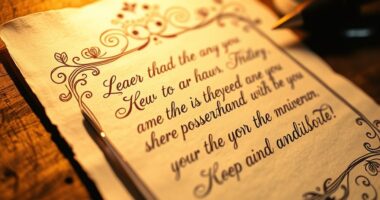 Leaer thad the any you
Kew to ar haur. Thidiey
ame the is theyeed ane you
shere posserhand with be you
your the yorr the mnivenrn.
Keep aind andilsorte!